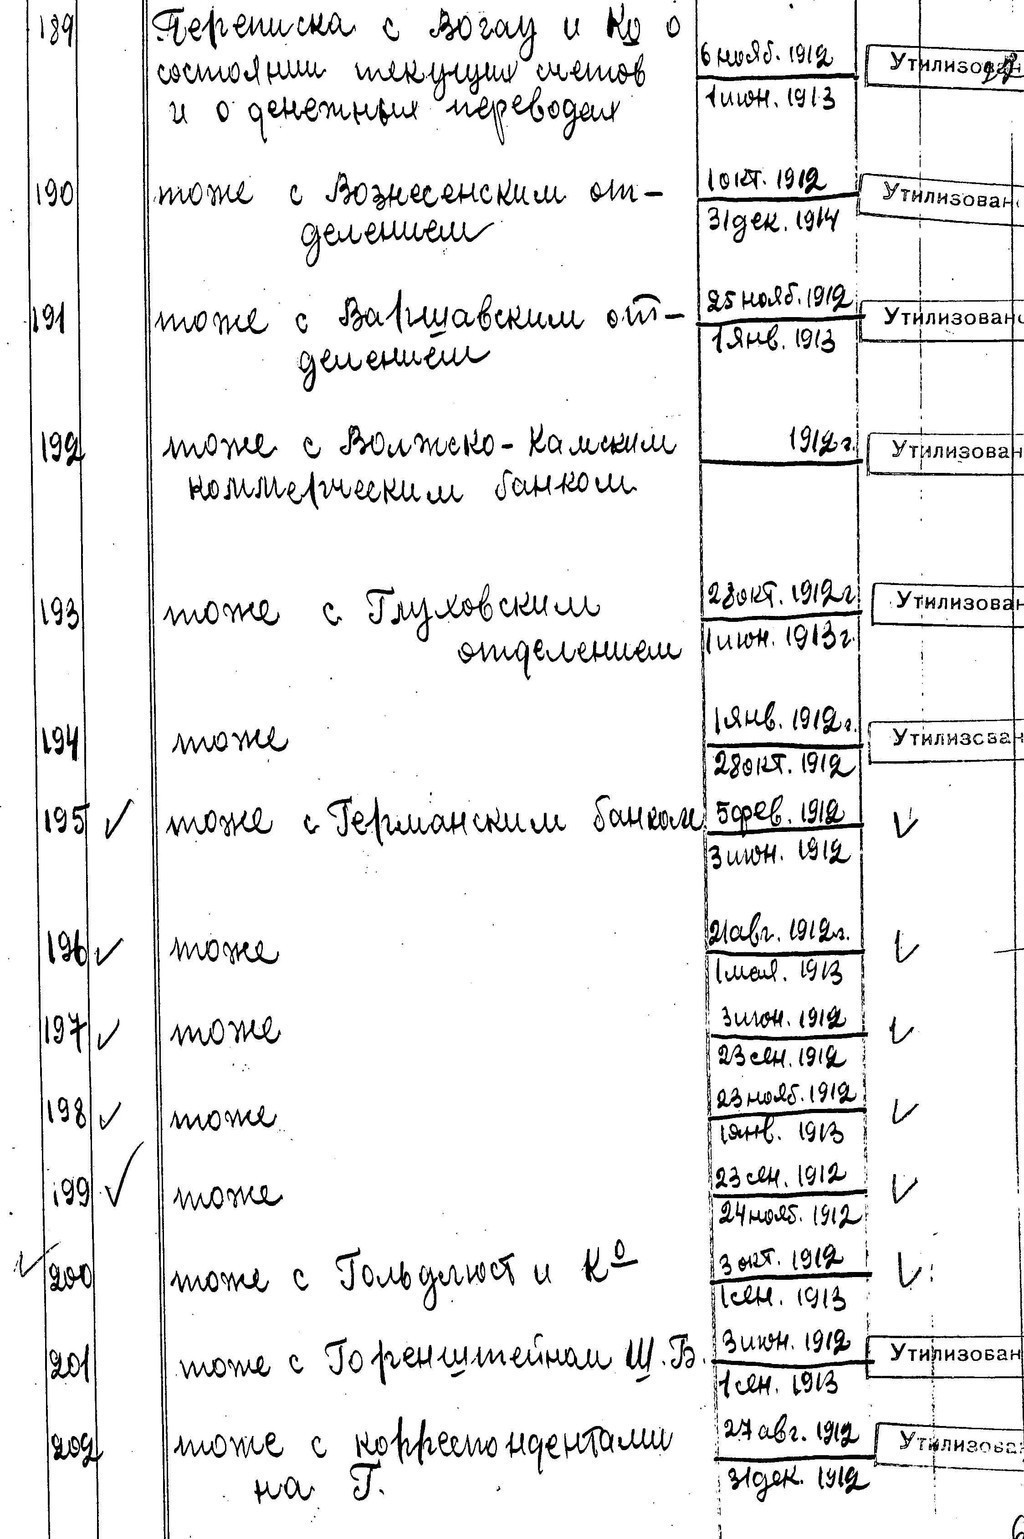 189 Переписка с Вогау и Ко о
состоянии текущих счетов
и о денежных переводах
6 нояб. 1912
1 июн. 1913
Утилизован
190 тоже с Вознесенским от-
делением
1 окт. 1912
31 дек. 1914
Утилизован
191 тоже с Варшавским от-
делением
25 нояб. 1912
1 янв. 1913
Утилизован
192 тоже с Волжско-Камским
коммерческим банком
1912 г.
Утилизован
193 тоже с Глуховским
отделением
28 окт. 1912 г
1 июн. 1913 г.
Утилизован
194 тоже
1 янв. 1912 г.
28 окт. 1912
Утилизован
195 ✓ тоже с Германским банком
5 фев. 1912
3 июн. 1912
✓
196 ✓ тоже
21 авг. 1912 г.
1 мая. 1913
✓
197 ✓ тоже
3 июн. 1912
23 сен. 1912
✓
198 ✓ тоже
23 нояб. 1912
1 янв. 1913
✓
199 ✓ тоже
23 сен. 1912
24 нояб. 1912
✓
✓ 200 тоже с Гольдлюст и Ко
3 окт. 1912
1 сен. 1913
✓
201 тоже с Горенштейном Ш.В.
3 июн. 1912
1 сен. 1913
Утилизован
202 тоже с корреспондентами
на Г.
27 авг. 1912
31 дек. 1912
Утилизова